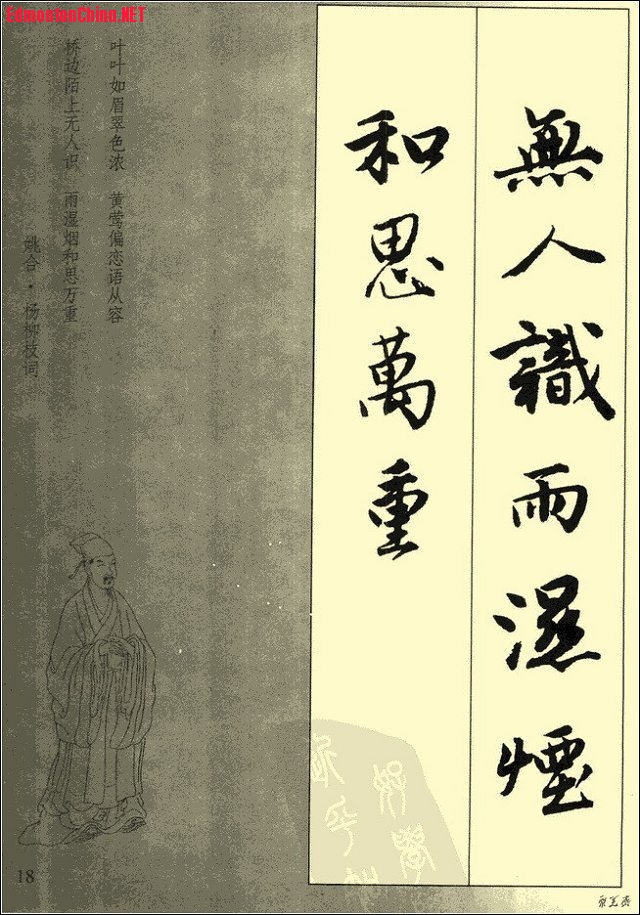 EdmontonChina.NET
無人識雨濕煙
和思萬重
好學
近乎
叶叶如眉翠色浓 黄莺偏恋语从容
桥边陌上无人识 雨湿烟和思万重
姚合·杨柳枝词
18